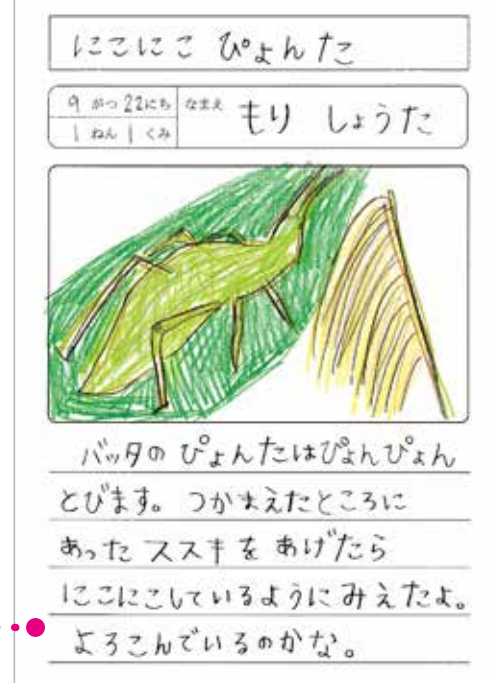 にこにこ ぴょんた
9がつ22にち
1ねん1くみ
なまえ もり しょうた
バッタの ぴょんたはぴょんぴょん
とびます。つかまえたところに
あった ススキを あげたら
にこにこしているようにみえたよ。
よろこんでいるのかな。